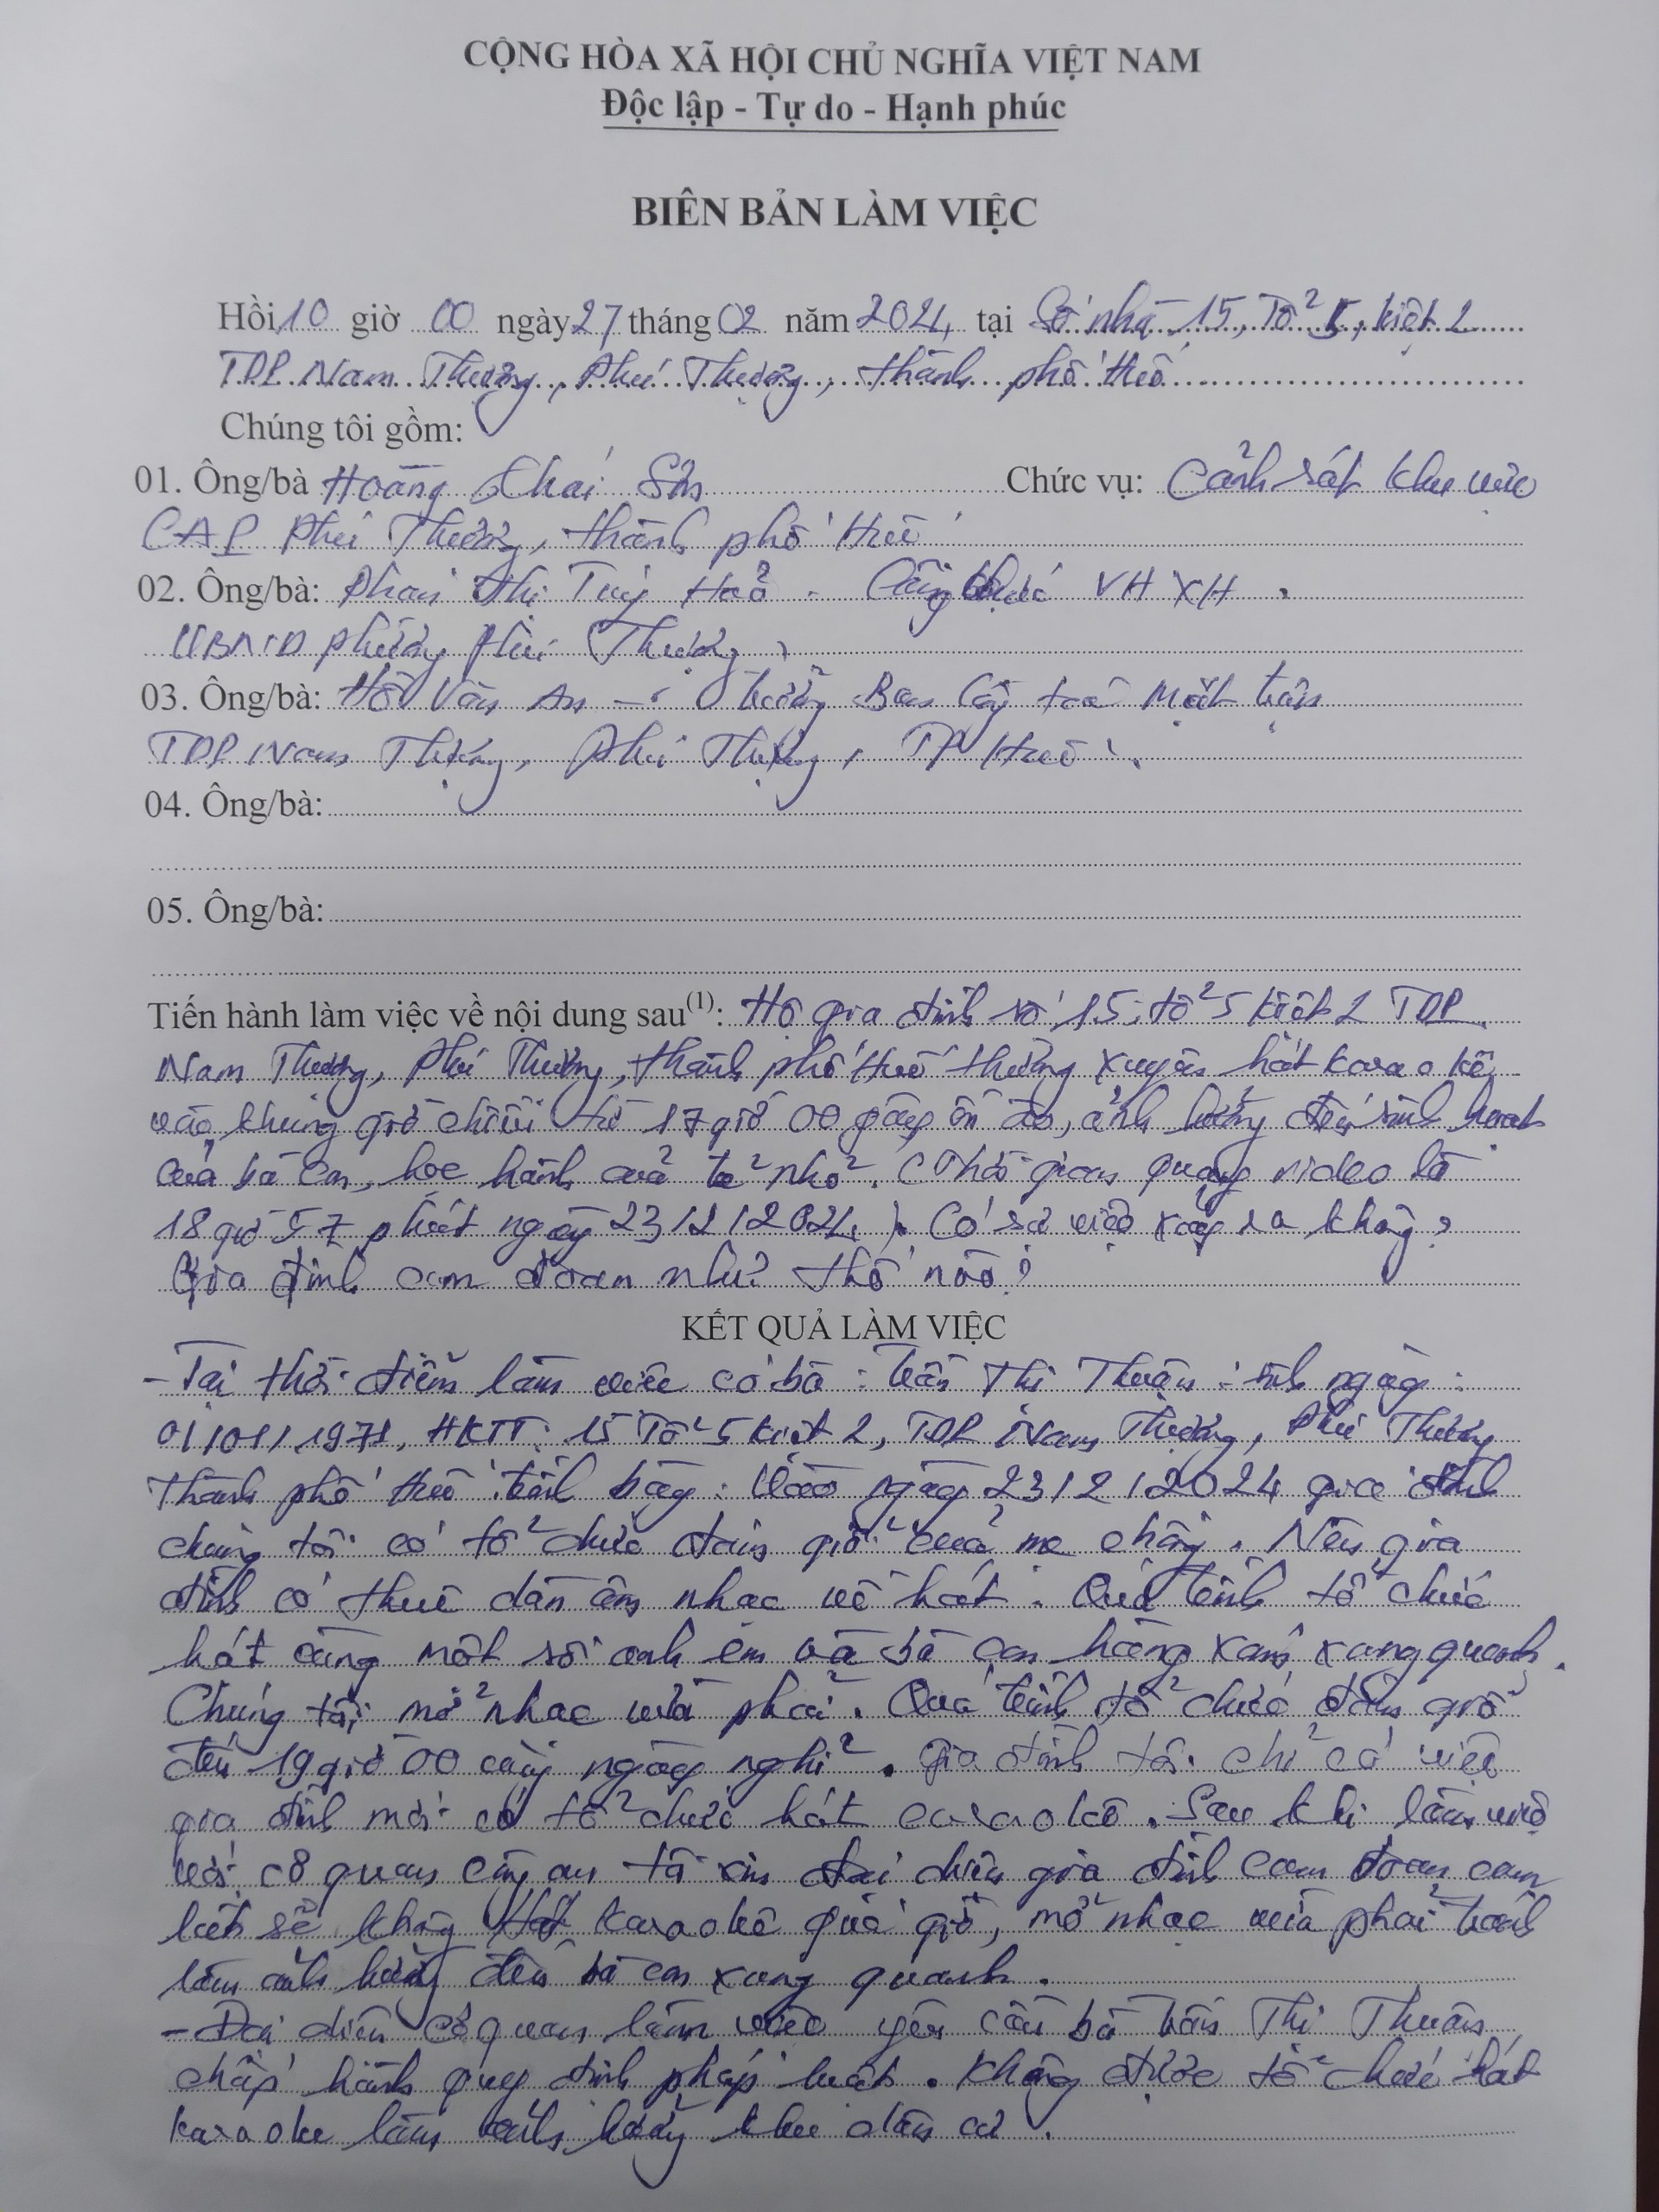 CỘNG HÒA XÃ HỘI CHỦ NGHĨA VIỆT NAM
Độc lập - Tự do - Hạnh phúc
BIÊN BẢN LÀM VIỆC
Hồi 10 giờ 00 ngày 27 tháng 02 năm 2024, tại Số nhà 15, Tổ 5, kiệt 2
TDP Nam Thượng, Phú Thượng, thành phố Huế
Chúng tôi gồm:
01. Ông/bà Hoàng Thái Sơn Chức vụ: Cảnh sát khu vực
CAP Phú Thượng, thành phố Huế
02. Ông/bà: Phan Thị Hoà - Công chức VH XH.
UBND phường Phú Thượng
03. Ông/bà: Hồ Văn An - Trưởng Ban Công tác Mặt trận
TDP Nam Thượng, Phú Thượng, TP Huế.
04. Ông/bà:
05. Ông/bà:
Tiến hành làm việc về nội dung sau(1): Hộ gia đình số 15, tổ 5 kiệt 2 TDP
Nam Thượng, Phú Thượng, thành phố Huế thường xuyên hát karaokê
vào khung giờ chiều từ 17 giờ 00 gây ồn ào, ảnh hưởng đến sinh hoạt
của bà con, học hành của trẻ nhỏ. (Thời gian quay video là
18 giờ 57 phút ngày 23/2/2024). Có sự việc xảy ra không?
Gia đình cam đoan như thế nào?
KẾT QUẢ LÀM VIỆC
- Tại thời điểm làm việc có bà: Trần Thị Thuận: sinh ngày:
01/01/1971, HKTT: 15 Tổ 5 kiệt 2, TDP Nam Thượng, Phú Thượng
Thành phố Huế trình bày: Vào ngày 23/2/2024 gia đình
chúng tôi có tổ chức đám giỗ của mẹ chồng. Nên gia
đình có thuê dàn âm nhạc về hát. Quá trình tổ chức
hát cùng một số anh em và bà con hàng xóm xung quanh.
Chúng tôi mở nhạc vừa phải. Quá trình tổ chức đám giỗ
đến 19 giờ 00 cùng ngày nghỉ. Gia đình tôi chỉ có việc
gia đình mới có tổ chức hát caraokê. Sau khi làm việc
với cơ quan công an tôi xin đại diện gia đình cam đoan, cam
kết sẽ không hát karaokê quá giờ, mở nhạc vừa phải tránh
làm ảnh hưởng đến bà con xung quanh.
- Đại diện cơ quan làm việc yêu cầu bà Trần Thị Thuận
chấp hành quy định pháp luật. Không được tổ chức hát
karaoke làm ảnh hưởng khu dân cư.